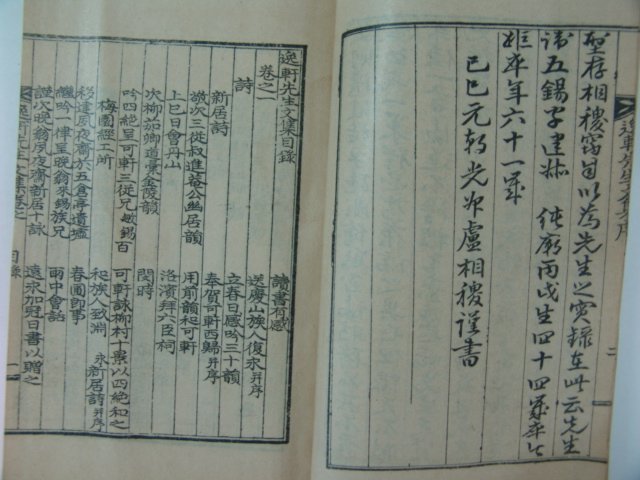 聖存相稷窃自以為先生之實錄在此云先生
諱五錫字建叔 純廟丙戌生四十四歲卒
年六十一歲
己巳元朝光州盧相稷謹書
逸軒先生文集序
二
逸軒先生文集目錄
卷之一
詩
新居詩
讀書有感
敬次三從叔進菴公幽居韻
送慶山族人復永并序
上巳日會丹山
立春日感吟三十韻
次柳茄卿道東金霞韻
奉賀可軒西歸并序
吟四絶呈可軒三從兄敝錫百
用前韻和可軒
梅園經工所
洛濱拜六臣祠
閔時
移建夙夜齋於五倉亭遺墟
可軒詠柳村十景以四絶和之
繼吟一律呈晚翁來錫族兄
和族人致淵 永新居詩并序
謹次晚翁夙夜齋新居十詠
春園卽事
雨中會話
遠永加冠日書以贈之
逸軒先生文集卷之一
目錄
一